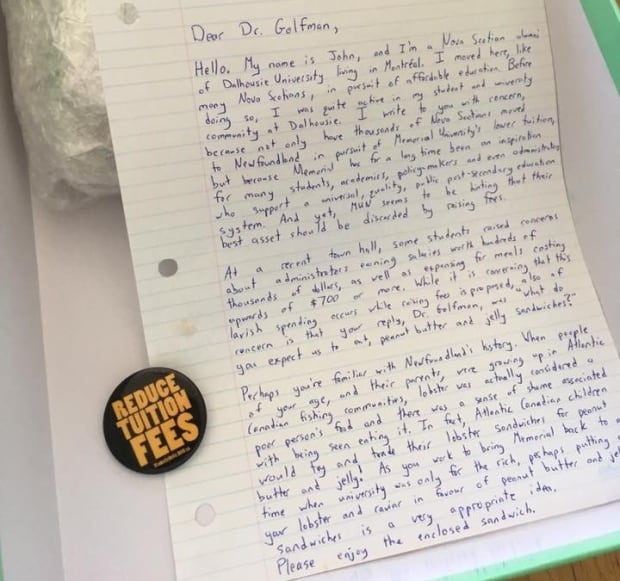 Dear Dr. Golfman,
Hello. My name is John, and I'm a Nova Scotian alumni
of Dalhousie University living in Montréal. I moved here, like
many Nova Scotians, in pursuit of affordable education. Before
doing so, I was quite active in my student and university
community at Dalhousie. I write to you with concern,
because not only have thousands of Nova Scotians moved
to Newfoundland in pursuit of Memorial University's lower tuition,
but because Memorial has for a long time been an inspiration
for many students, academics, policy-makers and even administrators
who support a universal, quality, public post-secondary education
system. And yet, MUN seems to be hinting that their
best asset should be discarded by raising fees.
At a recent town hall, some students raised concerns
about administrators earning salaries worth hundreds of
thousands of dollars, as well as expensing for meals costing
upwards of $700 or more. While it is concerning that this
lavish spending occurs while raising fees is proposed, also of
concern is that your reply, Dr. Golfman, was "what do
you expect us to eat, peanut butter and jelly sandwiches?"
Perhaps you're familiar with Newfoundland's history. When people
of your age, and their parents, were growing up in Atlantic
Canadian fishing communities, lobster was actually considered a
poor person's food and there was a sense of shame associated
with being seen eating it. In fact, Atlantic Canadian children
would try and trade their lobster sandwiches for peanut
butter and jelly! As you work to bring Memorial back to a
time when university was only for the rich, perhaps putting
your lobster and caviar in favour of peanut butter and
sandwiches is a very appropriate idea.
Please enjoy the enclosed sandwich.
REDUCE
TUITION
FEES